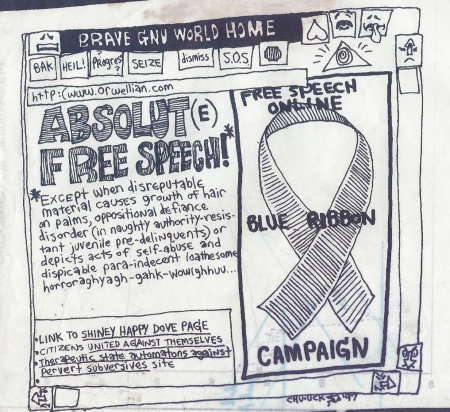 BRAVE GNU WORLD HOME
BAK HEIL! Progres? SEIZE dismiss S.O.S
http:(www.orwellian.com
ABSOLUT(E)
FREE SPEECH!*
*EXCEPT when disreputable
material causes growth of hair
on palms, oppositional defiance
disorder (in naughty authority-resis-
tant juvenile pre-delinquents) or
depicts acts of self-abuse and
dispicable para-indecent loathesome
horroraghyagh-gahk-wow(ghhuu...
•LINK TO SHINEY HAPPY DOVE PAGE
•CITIZENS UNITED AGAINST THEMSELVES
•Therapeutic state automatons against
pervert subversives site
FREE SPEECH
ONLINE
BLUE RIBBON
CAMPAIGN
CHU-UCK '97